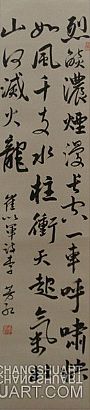 烈焰濃煙漫長空一車呼嘯疾
如風千支水柱衝天起氣壯
山河滅火龍
以軍詩李芳